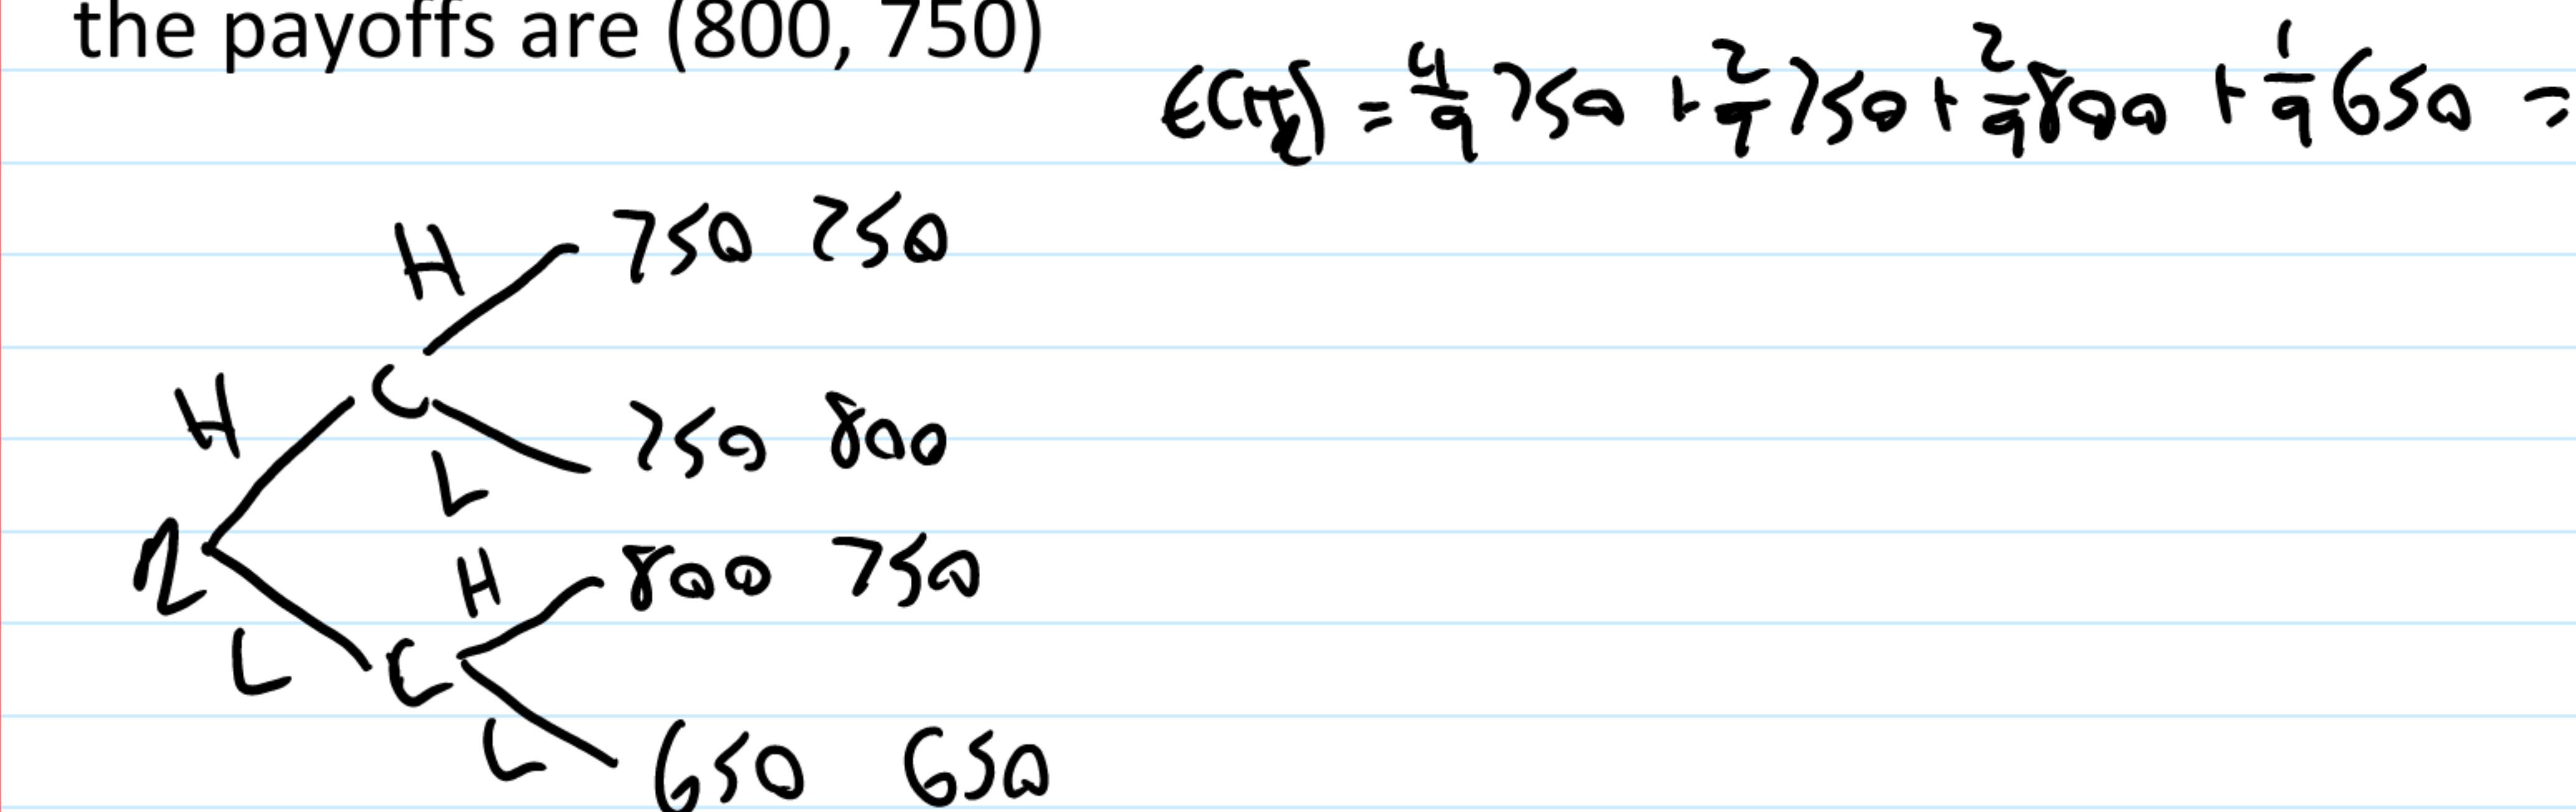 the payoffs are (800, 750)
= 4/9 750 + 2/9 750 + 2/9 800 + 1/9 650 =
H 750 750
H C
L 750 800
H 800 750
L C
L 650 650